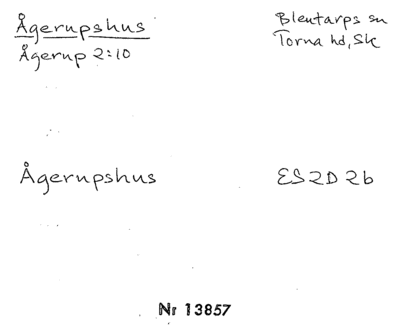 Ågerupshus
Ågerup 2:10
Blentarps sn
Torna hd, Sk
Ågerupshus
ES 2D 2b
Nr 13857